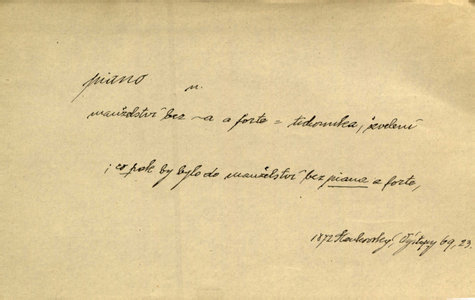 piano n.
manželství bez ~a a forte =
; co pak by bylo do manželství bez piana a forte,
1872 69, 23.